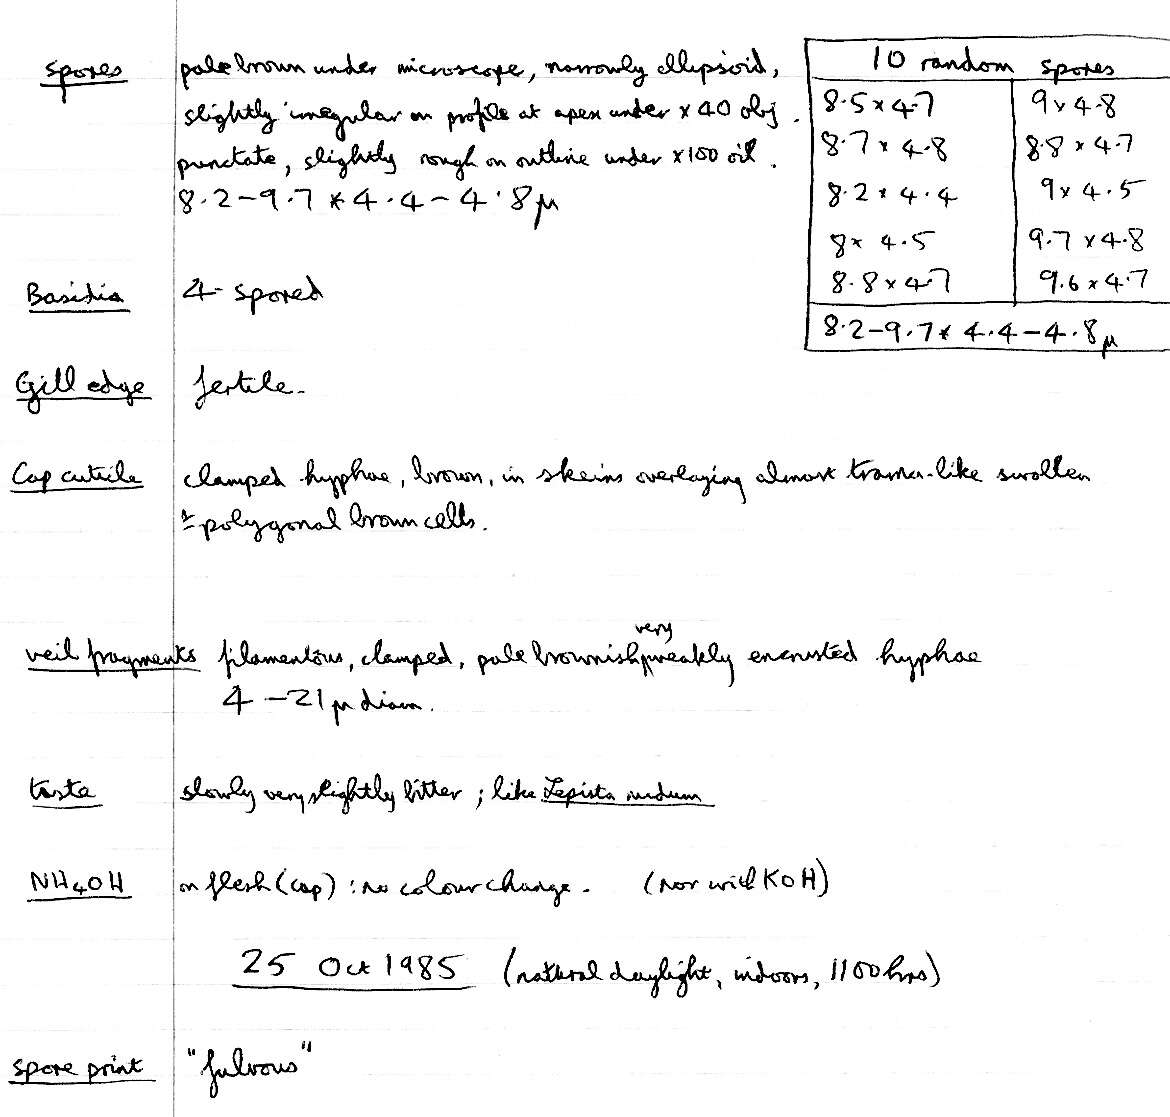 spores pale brown under microscope, narrowly ellipsoid,
slightly irregular on profile at apex under x 40 obj.
punctate, slightly rough on outline under x100 oil.
8.2-9.7 x 4.4-4.8 µ
10 random spores
8.5 x 4.7 9 x 4.8
8.7 x 4.8 8.8 x 4.7
8.2 x 4.4 9 x 4.5
8 x 4.5 9.7 x 4.8
8.8 x 4.7 9.6 x 4.7
8.2-9.7 x 4.4-4.8 µ
Basidia 4-spored
Gill edge fertile.
Cap cuticle clamped hyphae, brown, in skeins overlaying almost trama-like swollen
± polygonal brown cells.
very
veil fragments filamentous, clamped, pale brownish, weakly encrusted hyphae
4-21 µ diam.
taste slowly very slightly bitter; like Lepista nudum
NH4OH on flesh (cap): no colour change. (nor with KOH)
25 Oct 1985 (natural daylight, indoors, 1100 hrs)
spore print "fulvous"